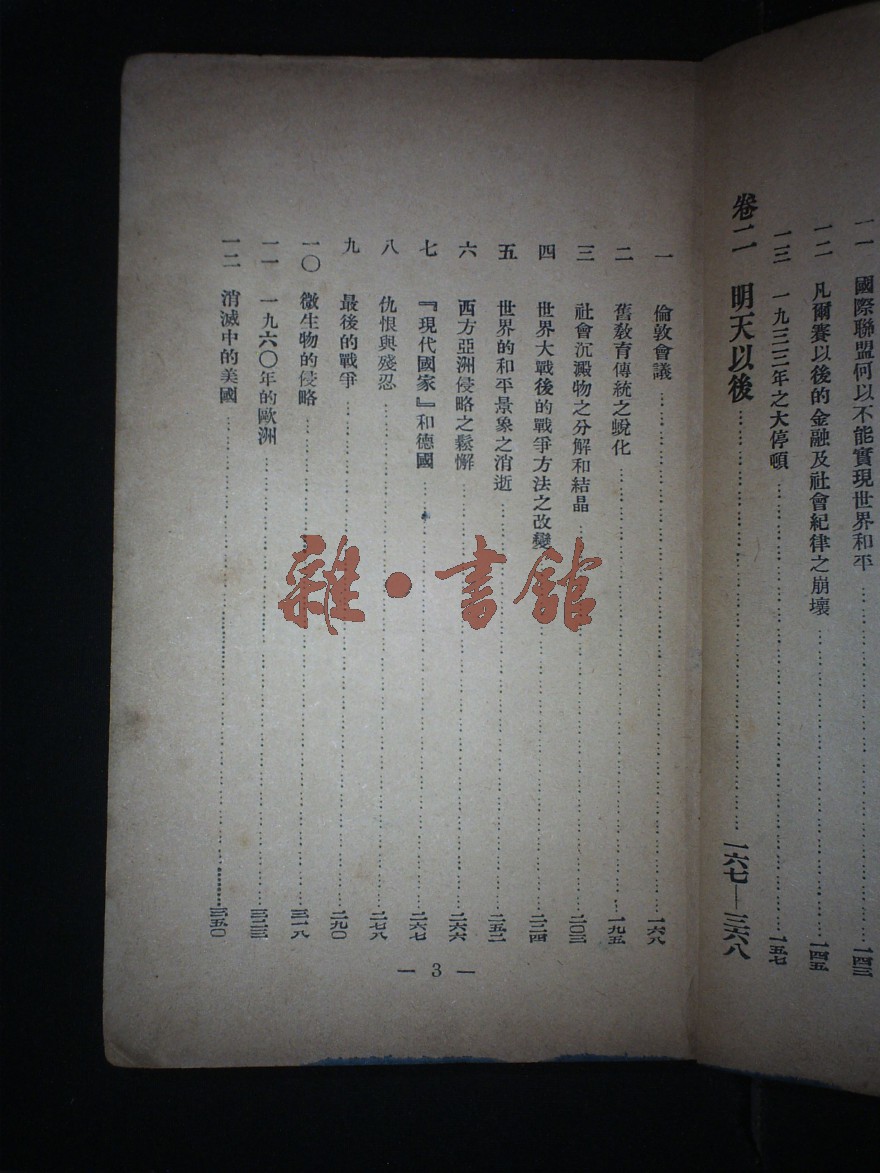 一一　國際聯盟何以不能實現世界和平……一四三
一二　凡爾賽以後的金融及社會紀律之崩壞……一四五
一三　一九三三年之大停頓……一五七
卷二　明天以後……一六七—三六八
一　倫敦會議……一六八
二　舊教育傳統之蛻化……一九五
三　社會沉澱物之分解和結晶……二〇三
四　世界大戰後的戰爭方法之改變……二二四
五　世界的和平景象之消逝……二五二
六　西方亞洲侵略之鬆懈……二六六
七　『現代國家』和德國……二六七
八　仇恨與殘忍……二七八
九　最後的戰爭……二九〇
一〇　微生物的侵略……三一八
一一　一九六〇年的歐洲……三二三
一二　消滅中的美國……三五〇
— 3 —
雜·書館